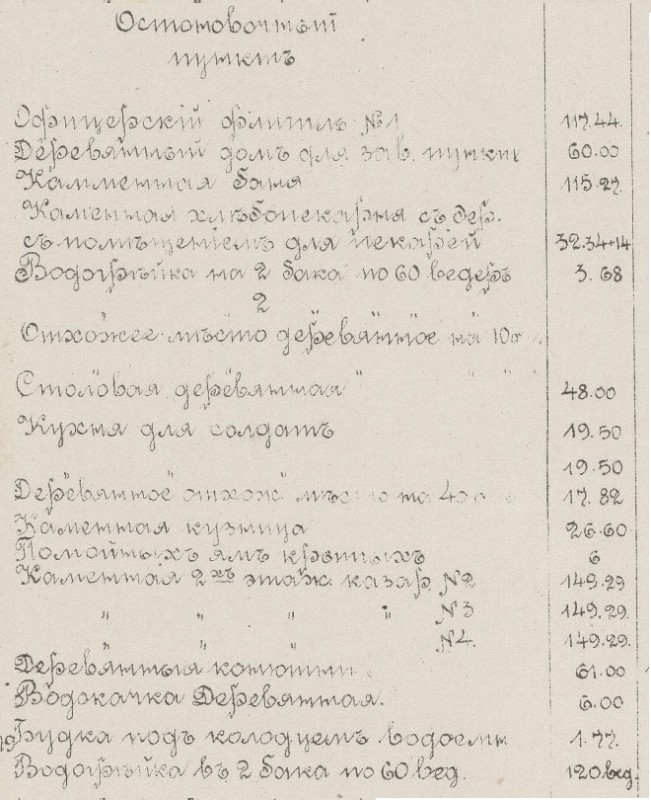 Остановочный
пунктъ
Офицерскій флигиль №1 117.44.
Деревянный домъ для зав. пункт 60.00
Камменная баня 115.27.
Каменная хлѣбопекарня съ дер.
съ помѣщеніемъ для пекарей 32.34+14
Водогрѣйка на 2 бака по 60 ведеръ 3.68
2
Отхожее мѣсто деревянное на 10
Столовая деревянная 48.00
Кухня для солдатъ 19.50
19.50
Деревянное отхож мѣсто на 40 17.82
Каменная кузница 26.60
Помойныхъ ямъ крытыхъ 6
Каменная 2хъ этаж. казар. №2 149.29
" " " " №3 149.29.
" " №4. 149.29.
Деревянныя конюшни 61.00
Водокачка Деревянная. 6.00
Будка подъ колодцемъ водоемн 1.77.
Водогрѣйка въ 2 бака по 60 вед. 120 вед.